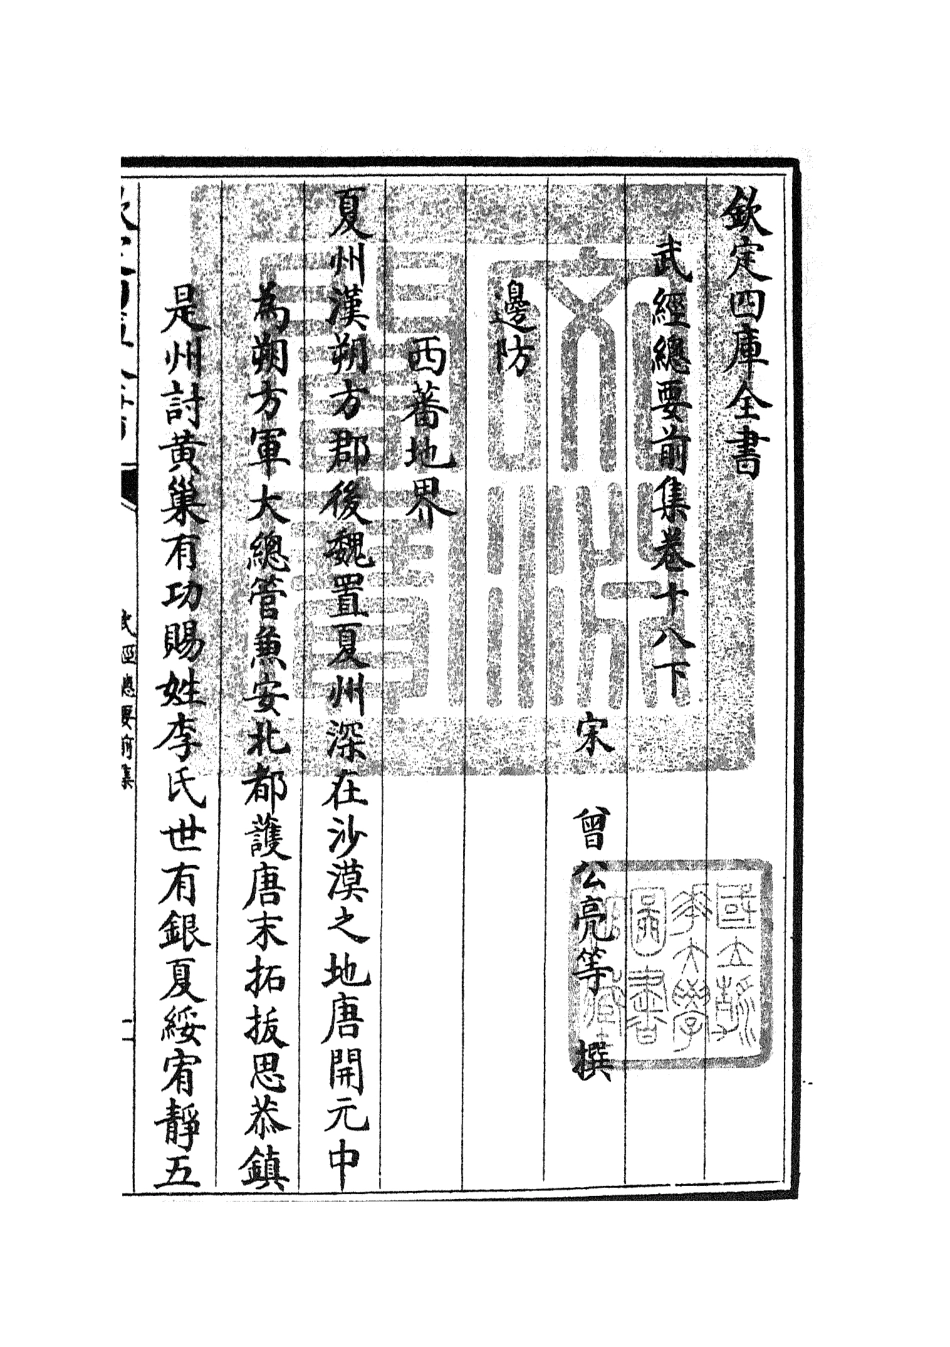 欽定四庫全書
武經總要前集卷十八下
宋 曾公亮等 撰
邊防
西蕃地界
夏州漢朔方郡後魏置夏州深在沙漠之地唐開元中
為朔方軍大總管兼安北都護唐末拓拔思恭鎮
是州討黃巢有功賜姓李氏世有銀夏綏宥靜五
武經總要前集